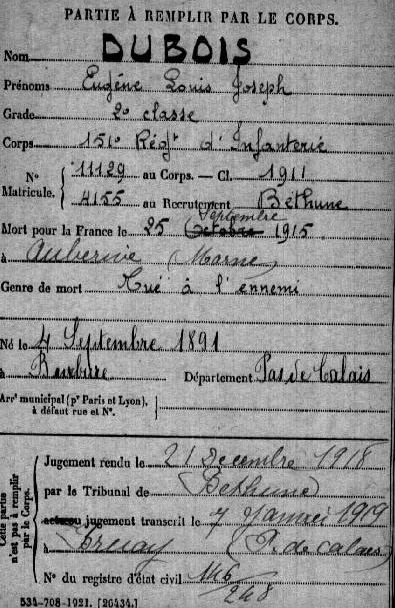 PARTIE À REMPLIR PAR LE CORPS.
Nom DUBOIS
Prénoms Eugène Louis Joseph
Grade 2e classe
Corps 151e Régt d'Infanterie
N° Matricule. { 11129 au Corps. — Cl. 1911
4155 au Recrutement Béthune
Septembre
Mort pour la France le 25 Octobre 1915
à Auberive (Marne)
Genre de mort Tué à l'ennemi
Né le 4 Septembre 1891
à Département Pas de Calais
Arrt municipal (pr Paris et Lyon), à défaut rue et N°. {
Cette partie n'est pas à remplir par le Corps.
Jugement rendu le 21 Décembre 1918
par le Tribunal de Béthune
acte ou jugement transcrit le 7 Janvier 1919
à Bruay (P. de Calais)
N° du registre d'état civil 146
248
534-708-1921. [26434.]